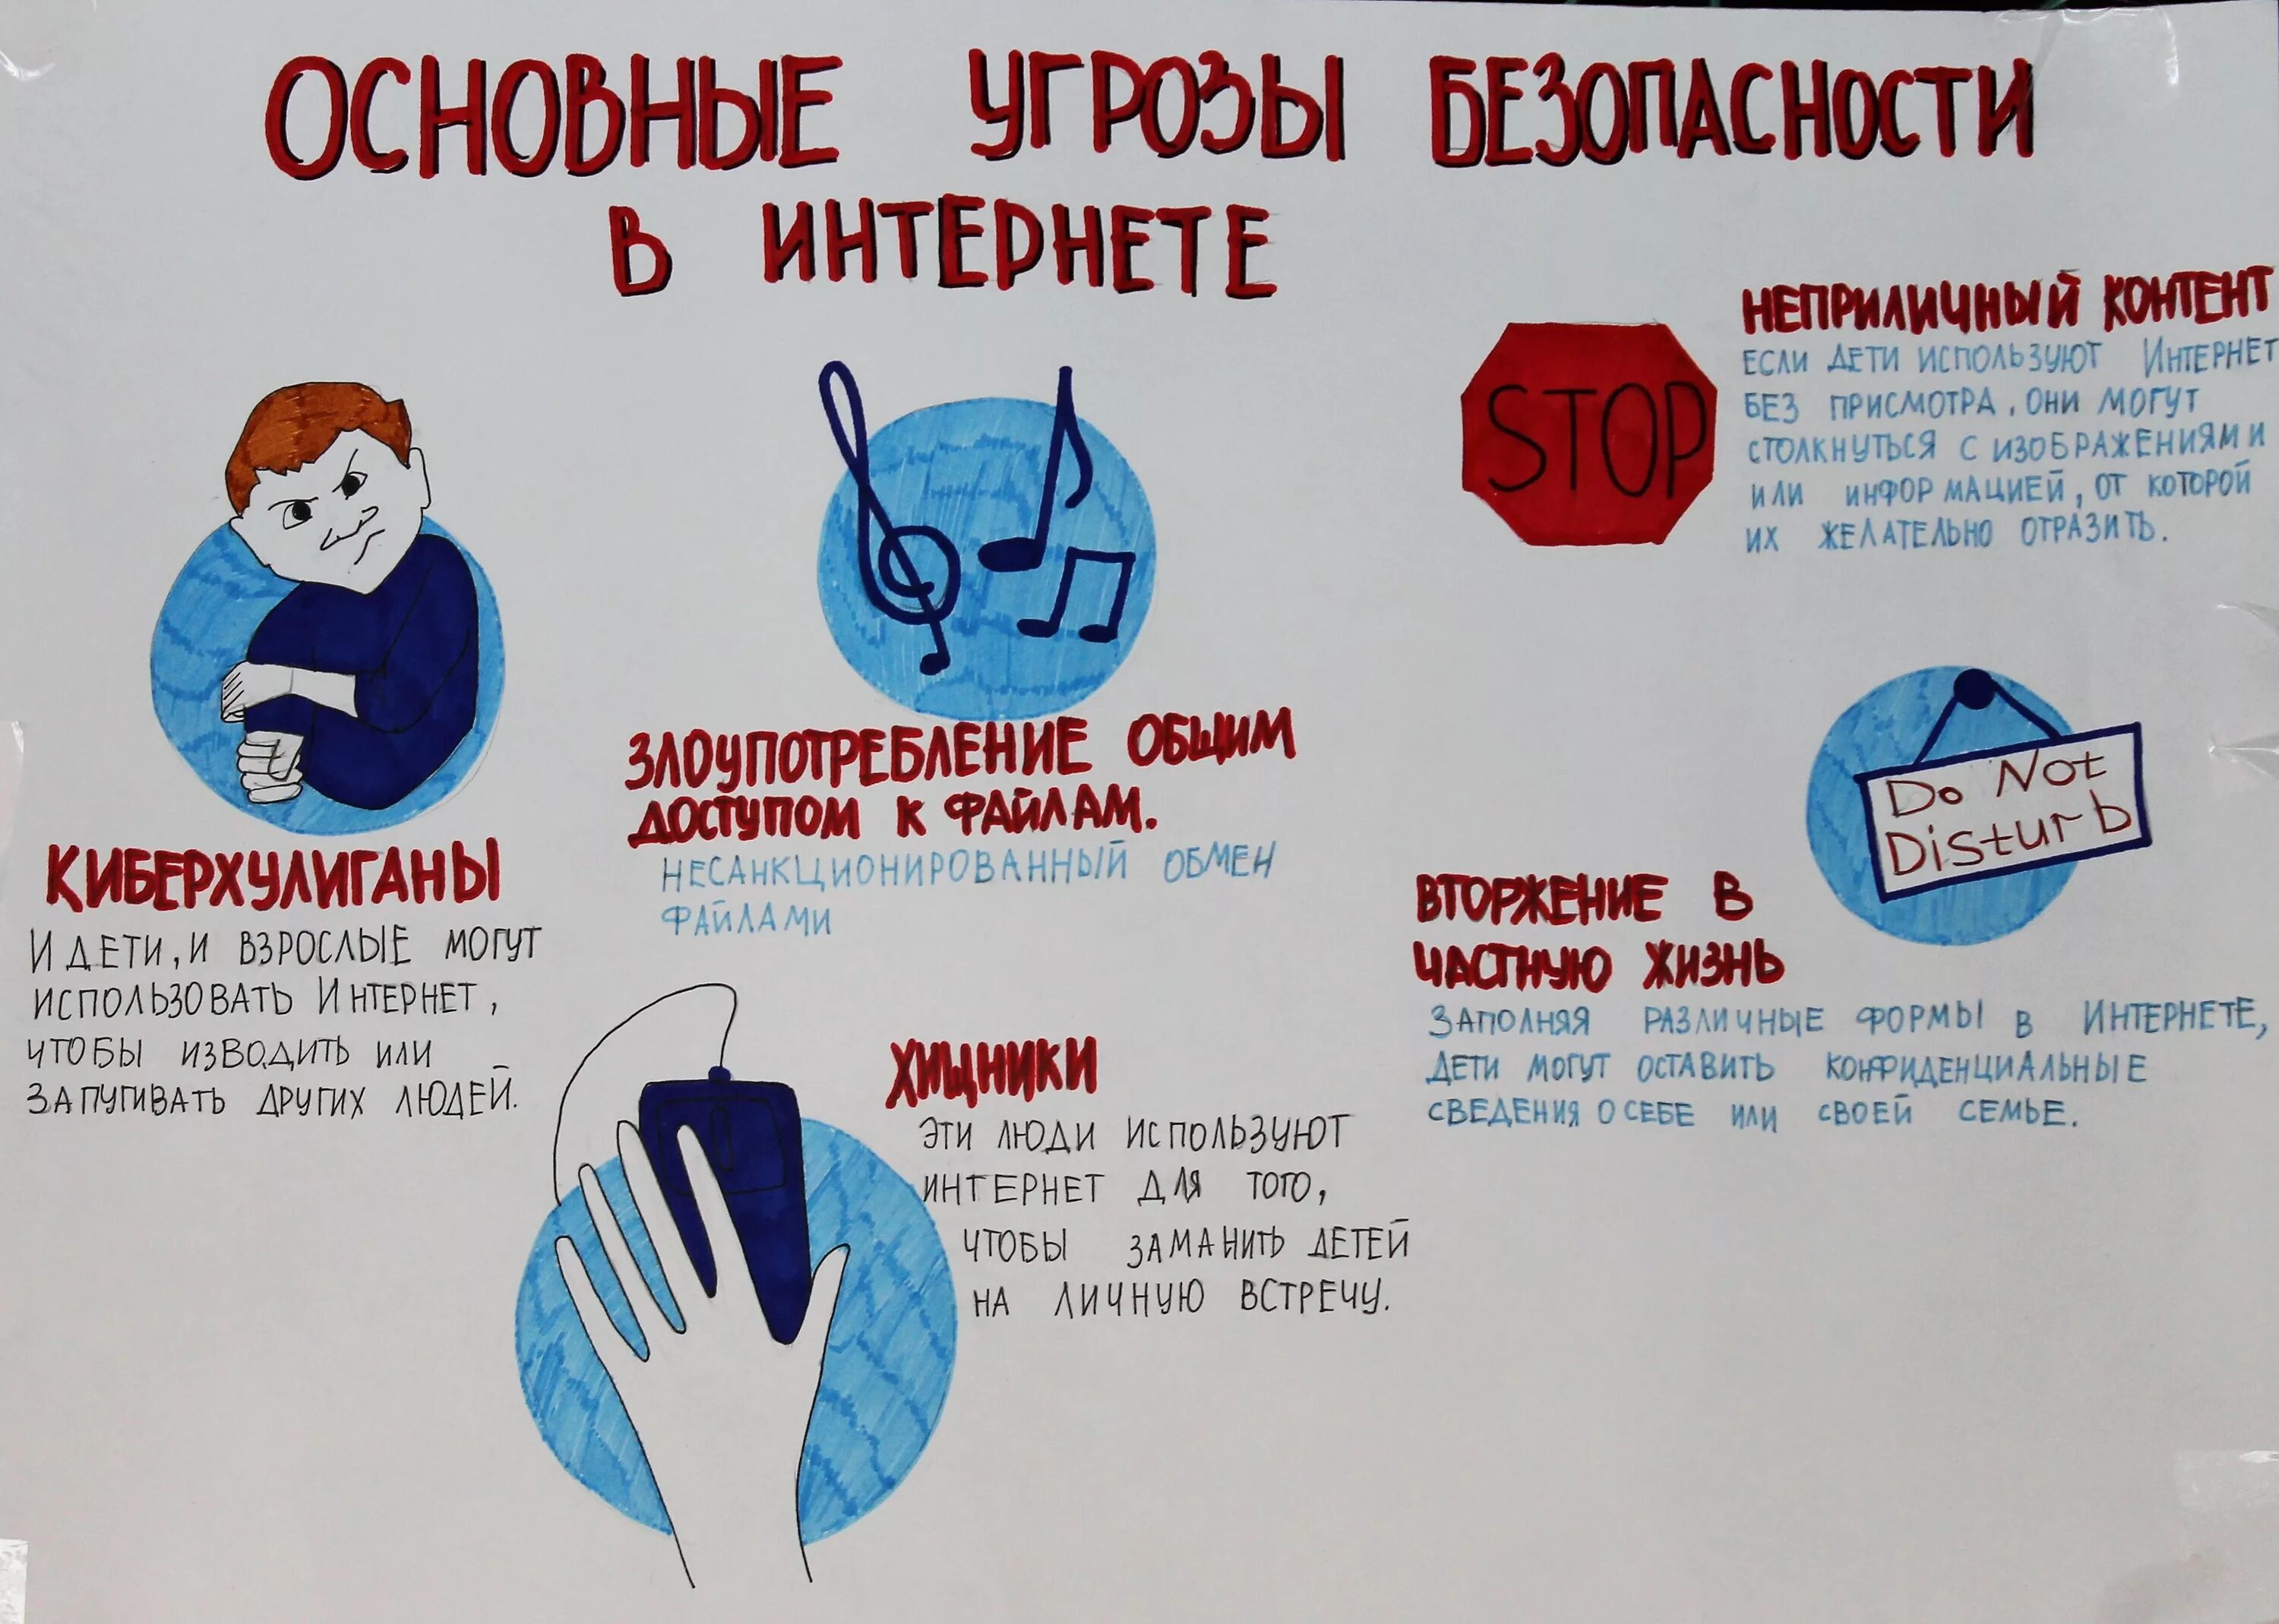 ОСНОВНЫЕ УГРОЗЫ БЕЗОПАСНОСТИ
В ИНТЕРНЕТЕ
КИБЕРХУЛИГАНЫ
И ДЕТИ, И ВЗРОСЛЫЕ МОГУТ
ИСПОЛЬЗОВАТЬ ИНТЕРНЕТ,
ЧТОБЫ ИЗВОДИТЬ ИЛИ
ЗАПУГИВАТЬ ДРУГИХ ЛЮДЕЙ.
ЗЛОУПОТРЕБЛЕНИЕ ОБЩИМ
ДОСТУПОМ К ФАЙЛАМ.
НЕСАНКЦИОНИРОВАННЫЙ ОБМЕН
ФАЙЛАМИ
ХИЩНИКИ
ЭТИ ЛЮДИ ИСПОЛЬЗУЮТ
ИНТЕРНЕТ ДЛЯ ТОГО,
ЧТОБЫ ЗАМАНИТЬ ДЕТЕЙ
НА ЛИЧНУЮ ВСТРЕЧУ.
STOP
НЕПРИЛИЧНЫЙ КОНТЕНТ
ЕСЛИ ДЕТИ ИСПОЛЬЗУЮТ ИНТЕРНЕТ
БЕЗ ПРИСМОТРА, ОНИ МОГУТ
СТОЛКНУТЬСЯ С ИЗОБРАЖЕНИЯМИ
ИЛИ ИНФОРМАЦИЕЙ, ОТ КОТОРОЙ
ИХ ЖЕЛАТЕЛЬНО ОТРАЗИТЬ.
Do Not
Disturb
ВТОРЖЕНИЕ В
ЧАСТНУЮ ЖИЗНЬ
ЗАПОЛНЯЯ РАЗЛИЧНЫЕ ФОРМЫ В ИНТЕРНЕТЕ,
ДЕТИ МОГУТ ОСТАВИТЬ КОНФИДЕНЦИАЛЬНЫЕ
СВЕДЕНИЯ О СЕБЕ ИЛИ СВОЕЙ СЕМЬЕ.